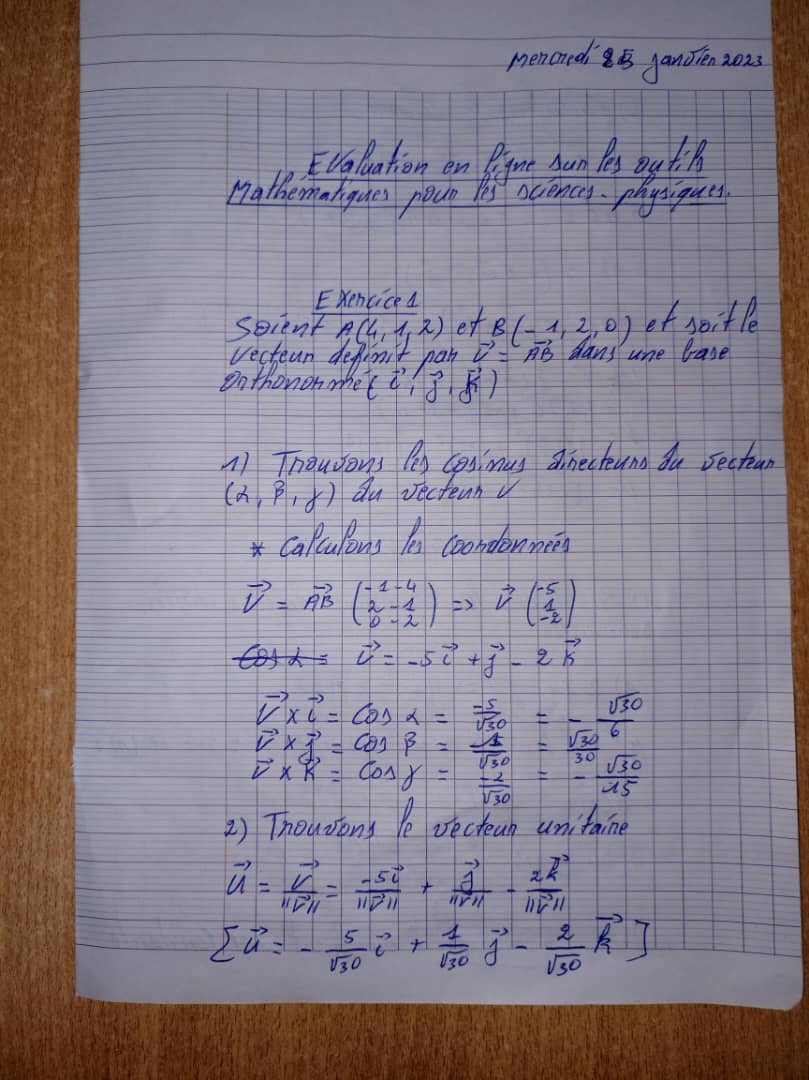 Mercredi 25 janvier 2023
Evaluation en ligne sur les outils
Mathématiques pour les sciences-physiques.
Exercice 1
Soient A(4,1,2) et B(-1,2,0) et soit le
vecteur définit par V⃗ = AB⃗ dans une base
orthonormé (i⃗, j⃗, k⃗)
1) Trouvons les cosinus directeurs du vecteur
(α, β, γ) du vecteur V
* Calculons les coordonnées
V⃗ = AB⃗ (-1-4 2-1 0-2) => V⃗ (-5 1 -2)
V⃗ = -5i⃗ + j⃗ - 2k⃗
V⃗ x i⃗ = Cos α = -5/√30 = - √30/6
V⃗ x j⃗ = Cos β = 1/√30 = √30/30
V⃗ x k⃗ = Cos γ = -2/√30 = - √30/15
2) Trouvons le vecteur unitaire
U⃗ = V⃗/"V⃗" = -5i⃗/"V⃗" + j⃗/"V⃗" - 2k⃗/"V⃗"
[U⃗ = - 5/√30 i⃗ + 1/√30 j⃗ - 2/√30 k⃗]